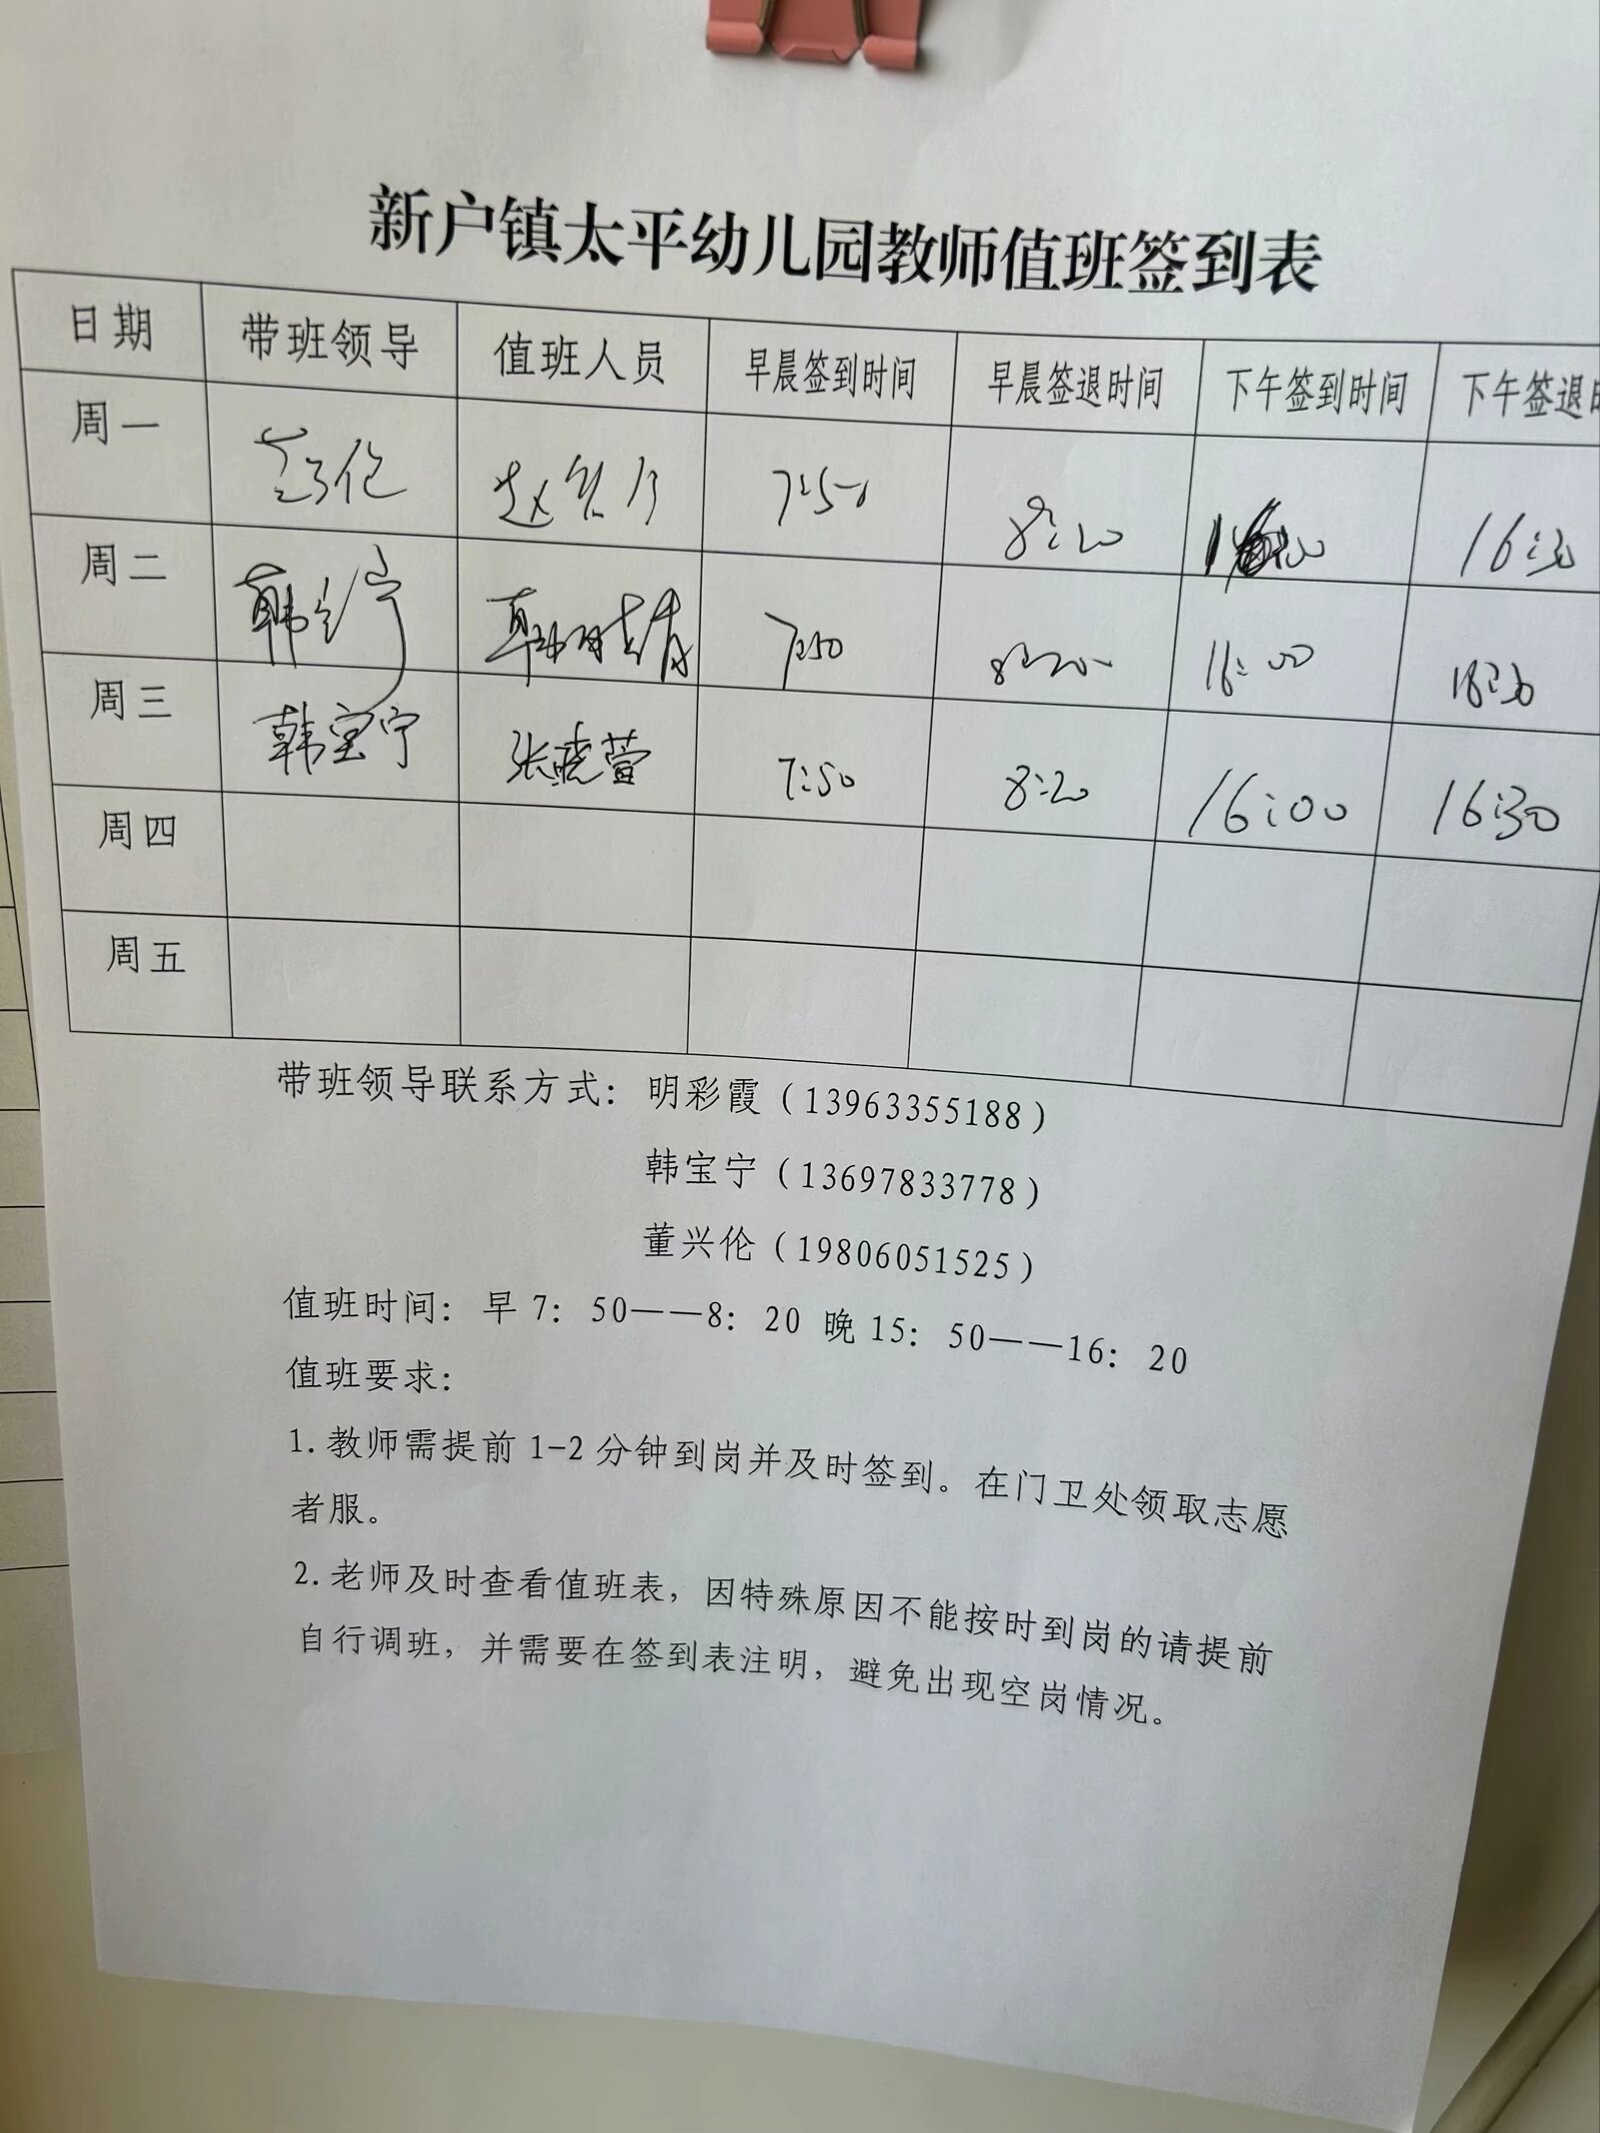 新户镇太平幼儿园教师值班签到表
日期 带班领导 值班人员 早晨签到时间 早晨签退时间 下午签到时间 下午签退时
周一 7:50 8:20 16:30
周二 韩宝宁 7:50 8:20 16:00 16:30
周三 韩宝宁 张晓萱 7:50 8:20 16:00 16:30
周四
周五
带班领导联系方式：明彩霞（13963355188）
韩宝宁（13697833778）
董兴伦（19806051525）
值班时间：早7：50——8：20 晚15：50——16：20
值班要求：
1.教师需提前1-2分钟到岗并及时签到。在门卫处领取志愿
者服。
2.老师及时查看值班表，因特殊原因不能按时到岗的请提前
自行调班，并需要在签到表注明，避免出现空岗情况。